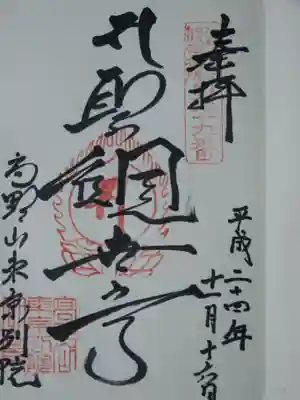 奉拝
平成二十四年
十一月十六日
聖観世音
高野山東京別院